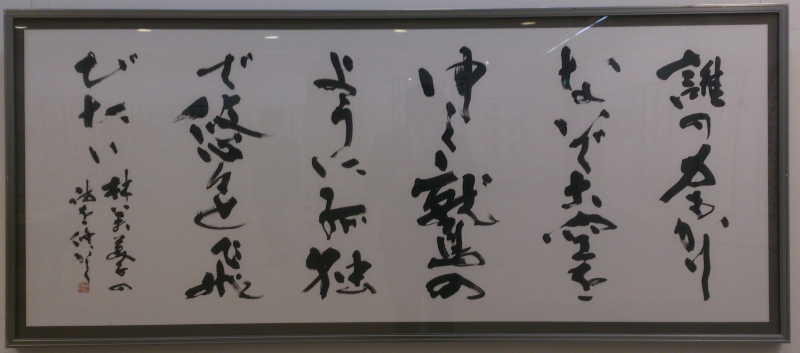 誰の力もかり
ないで大空を
ゆく鷲の
ように孤独
で悠々と飛
びたい
林芙美子の
詩を